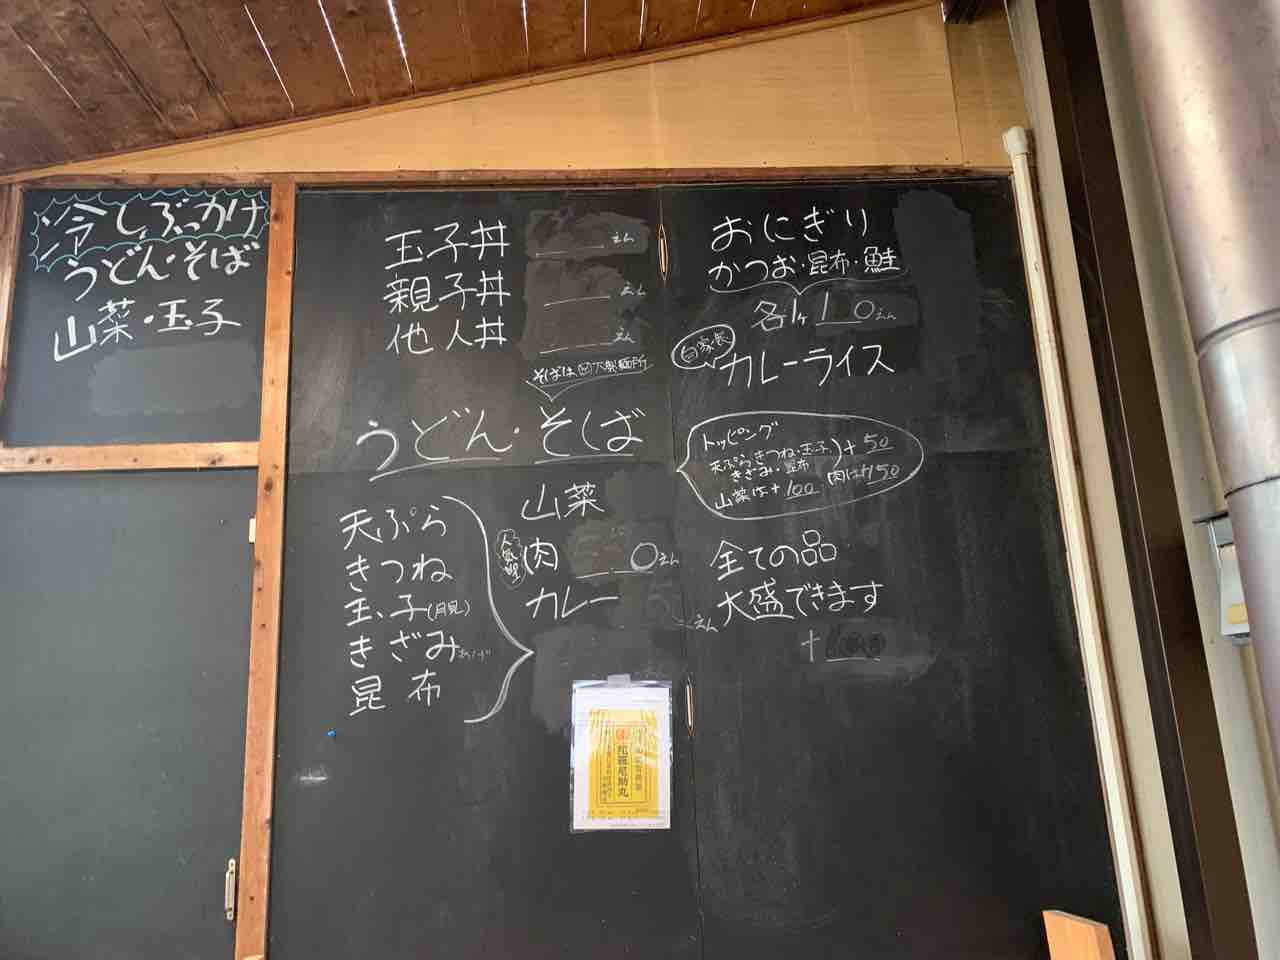 冷しぶっかけ
うどん・そば
山菜・玉子
玉子丼 えん
親子丼 えん
他人丼 えん
うどん・そば
天ぷら
きつね
玉子(月見)
きざみあげ
昆布
山菜
人気No.
肉 0えん
カレー えん
おにぎり
かつお・昆布・鮭
各1ヶ 1 0えん
自家製
カレーライス
トッピング
天ぷら、きつね・玉子、
きざみ・昆布 )+50
山菜は+100 肉は+150
全ての品
大盛できます
+
陀羅尼助丸